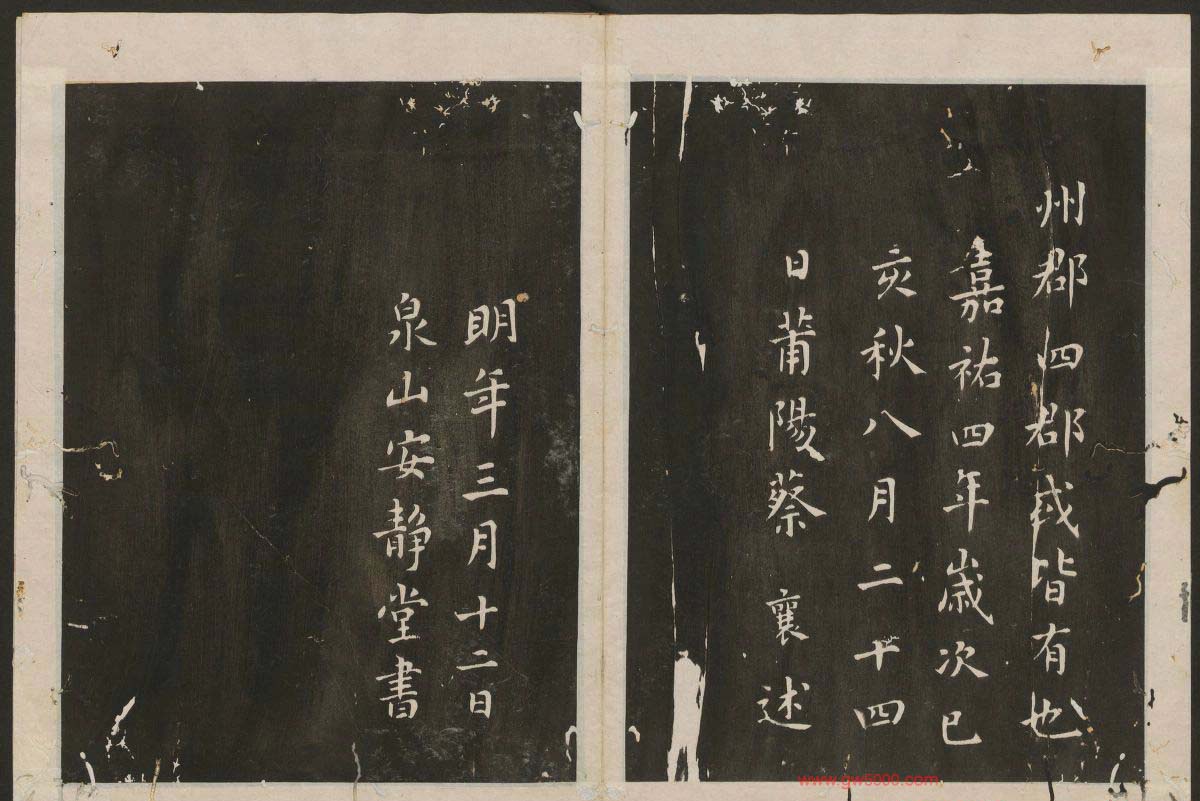 州郡四郡或皆有也
嘉祐四年歳次己
亥秋八月二十四
日莆陽蔡襄述
明年三月十二日
泉山安静堂書
www.gw5000.com